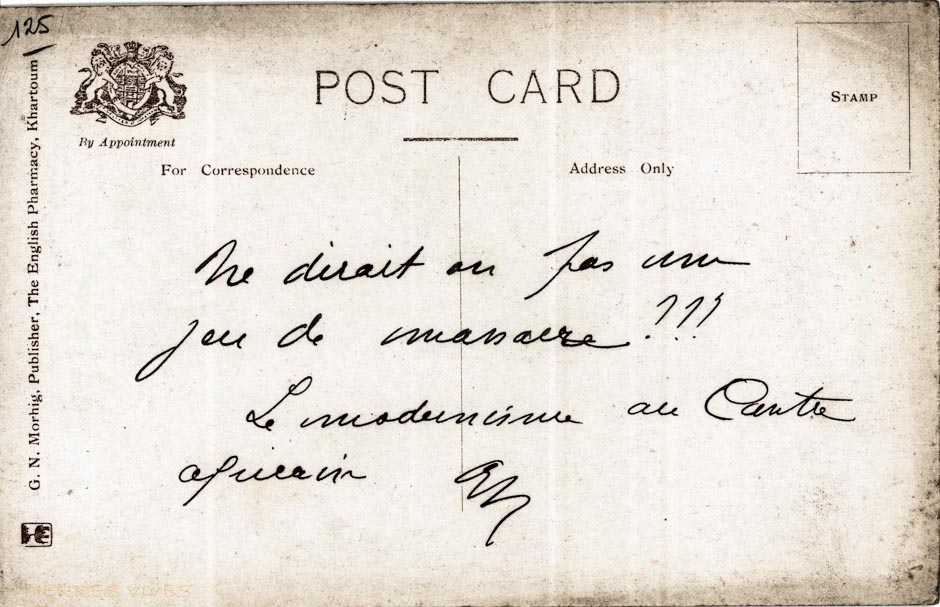 125
By Appointment
POST CARD
STAMP
For Correspondence
Address Only
G. N. Morhig, Publisher, The English Pharmacy, Khartoum
Ne dirait on pas une
jeu de massacre !!!
Le modernisme au Centre
africain
PIERRES VIVES